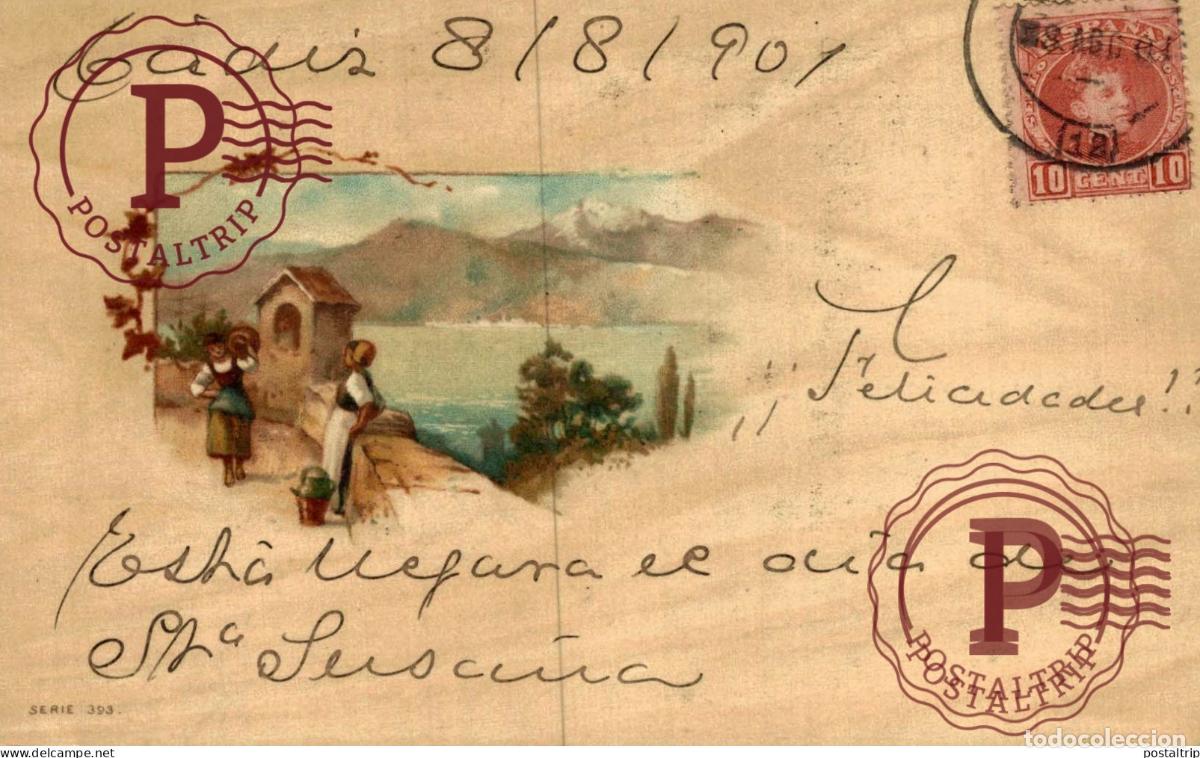 Cádiz 8/8/901
ESPAÑA
8 AGO 01
(12)
10 CENT 10
¡¡Felicidades!!
Está llegara el día de
Sta Susana
SERIE 393.
P
POSTALTRIP
P
POSTALTRIP
todocoleccion
www.delcampe.net
postaltrip